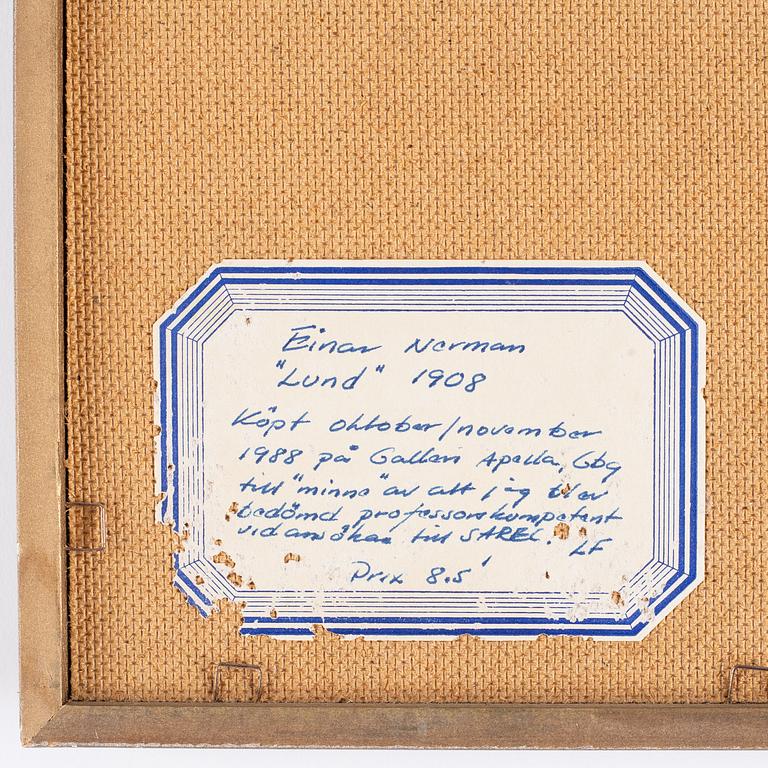 Einar Nerman
"Lund" 1908
Köpt oktober/november
1988 på Galleri Apella, Gbg
till "minne" av att jag blev
bedömd professorskompetent
vid ansökan till SAREC. LF
Prix 8.5'